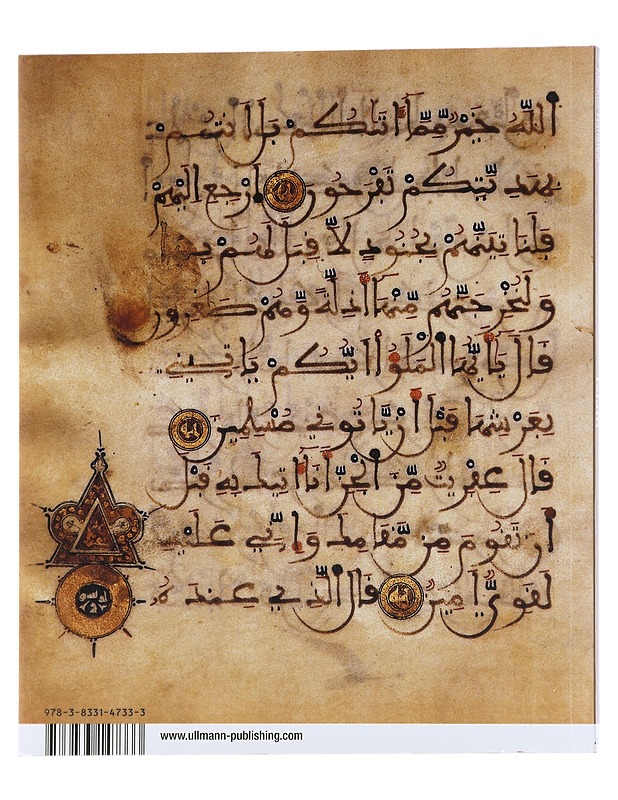 الله خير مما اتيكم بل انتم
بهديتكم تفرحون ارجع اليهم
فلناتينهم بجنود لا قبل لهم بها
ولنخرجنهم منها اذلة وهم صغرون
قال يايها الملؤا ايكم ياتيني
بعرشها قبل ان ياتوني مسلمين
قال عفريت من الجن انا اتيك به قبل
ان تقوم من مقامك واني عليه
لقوي امين قال الذي عنده
978-3-8331-4733-3
www.ullmann-publishing.com